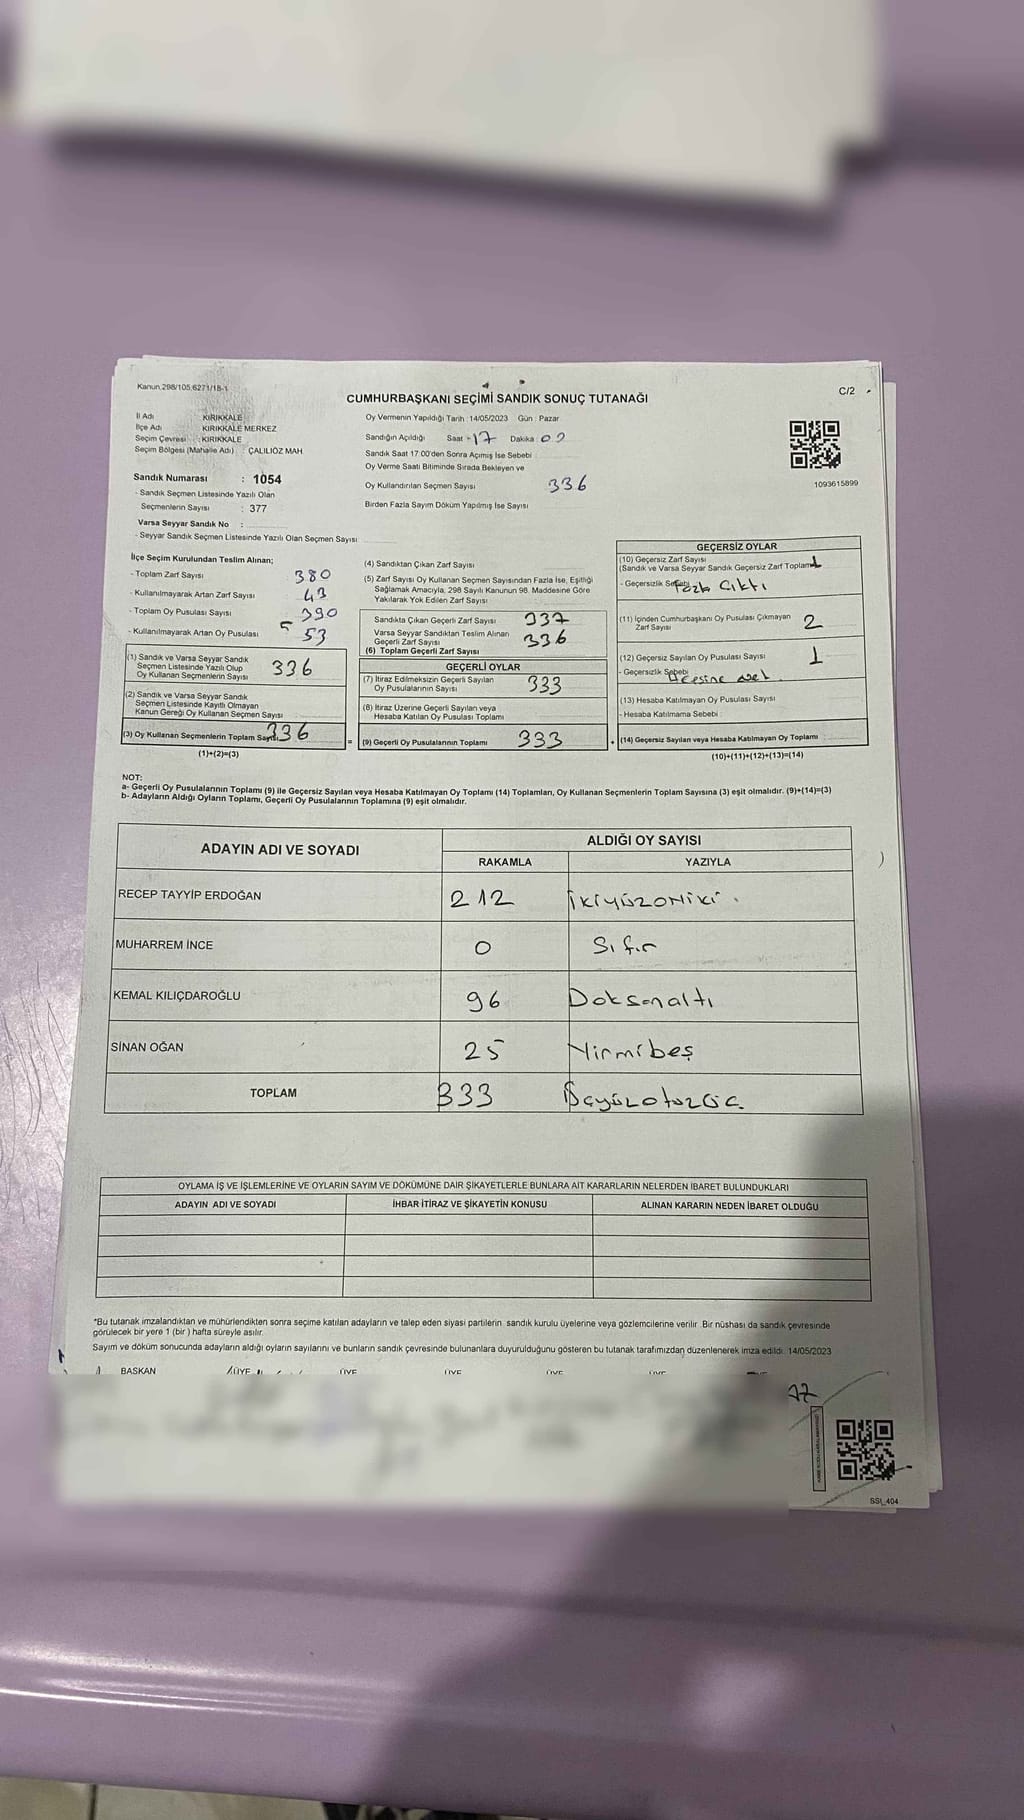 Kanun 298/105,6271/18-1
C/2
CUMHURBAŞKANI SEÇİMİ SANDIK SONUÇ TUTANAĞI
İl Adı KIRIKKALE
İlçe Adı KIRIKKALE MERKEZ
Seçim Çevresi : KIRIKKALE
Seçim Bölgesi (Mahalle Adı) : ÇALILIÖZ MAH
Sandık Numarası : 1054
- Sandık Seçmen Listesinde Yazılı Olan
Seçmenlerin Sayısı : 377
Varsa Seyyar Sandık No :
- Seyyar Sandık Seçmen Listesinde Yazılı Olan Seçmen Sayısı
Oy Vermenin Yapıldığı Tarih : 14/05/2023 Gün : Pazar
Sandığın Açıldığı Saat - 17 Dakika 02
Sandık Saat 17.00'den Sonra Açımış İse Sebebi
Oy Verme Saati Bitiminde Sırada Bekleyen ve
Oy Kullandırılan Seçmen Sayısı 336
Birden Fazla Sayım Döküm Yapılmış İse Sayısı
1093615899
İlçe Seçim Kurulundan Teslim Alınan;
- Toplam Zarf Sayısı 380
- Kullanılmayarak Artan Zarf Sayısı 43
- Toplam Oy Pusulası Sayısı 390
- Kullanılmayarak Artan Oy Pusulası 53
(1) Sandık ve Varsa Seyyar Sandık
Seçmen Listesinde Yazılı Olup
Oy Kullanan Seçmenlerin Sayısı 336
(2) Sandık ve Varsa Seyyar Sandık
Seçmen Listesinde Kayıtlı Olmayan
Kanun Gereği Oy Kullanan Seçmen Sayısı
(3) Oy Kullanan Seçmenlerin Toplam Sayısı 336
(1)+(2)=(3)
(4) Sandıktan Çıkan Zarf Sayısı
(5) Zarf Sayısı Oy Kullanan Seçmen Sayısından Fazla İse, Eşitliği
Sağlamak Amacıyla, 298 Sayılı Kanunun 98. Maddesine Göre
Yakılarak Yok Edilen Zarf Sayısı
Sandıkta Çıkan Geçerli Zarf Sayısı 337
Varsa Seyyar Sandıktan Teslim Alınan
Geçerli Zarf Sayısı 336
(6) Toplam Geçerli Zarf Sayısı
GEÇERLİ OYLAR
(7) İtiraz Edilmeksizin Geçerli Sayılan
Oy Pusulalarının Sayısı 333
(8) İtiraz Üzerine Geçerli Sayılan veya
Hesaba Katılan Oy Pusulası Toplamı
= (9) Geçerli Oy Pusulalarının Toplamı 333
GEÇERSİZ OYLAR
(10) Geçersiz Zarf Sayısı
(Sandık ve Varsa Seyyar Sandık Geçersiz Zarf Toplamı 1
- Geçersizlik Sebebi Fazla Çıktı
(11) İçinden Cumhurbaşkanı Oy Pusulası Çıkmayan
Zarf Sayısı 2
(12) Geçersiz Sayılan Oy Pusulası Sayısı 1
- Geçersizlik Sebebi
(13) Hesaba Katılmayan Oy Pusulası Sayısı
- Hesaba Katılmama Sebebi
+ (14) Geçersiz Sayılan veya Hesaba Katılmayan Oy Toplamı
(10)+(11)+(12)+(13)=(14)
NOT:
a- Geçerli Oy Pusulalarının Toplamı (9) ile Geçersiz Sayılan veya Hesaba Katılmayan Oy Toplamı (14) Toplamları, Oy Kullanan Seçmenlerin Toplam Sayısına (3) eşit olmalıdır. (9)+(14)=(3)
b- Adayların Aldığı Oyların Toplamı, Geçerli Oy Pusulalarının Toplamına (9) eşit olmalıdır.
ADAYIN ADI VE SOYADI
ALDIĞI OY SAYISI
RAKAMLA YAZIYLA
RECEP TAYYİP ERDOĞAN 212 İkiyüzoniki
MUHARREM İNCE 0 Sıfır
KEMAL KILIÇDAROĞLU 96 Doksanaltı
SİNAN OĞAN 25 Yirmibeş
TOPLAM 333 Üçyüzotuzüç
OYLAMA İŞ VE İŞLEMLERİNE VE OYLARIN SAYIM VE DÖKÜMÜNE DAİR ŞİKAYETLERLE BUNLARA AİT KARARLARIN NELERDEN İBARET BULUNDUKLARI
ADAYIN ADI VE SOYADI İHBAR İTİRAZ VE ŞİKAYETİN KONUSU ALINAN KARARIN NEDEN İBARET OLDUĞU
*Bu tutanak imzalandıktan ve mühürlendikten sonra seçime katılan adayların ve talep eden siyasi partilerin sandık kurulu üyelerine veya gözlemcilerine verilir. Bir nüshası da sandık çevresinde
görülecek bir yere 1 (bir) hafta süreyle asılır.
Sayım ve döküm sonucunda adayların aldığı oyların sayılarını ve bunların sandık çevresinde bulunanlara duyurulduğunu gösteren bu tutanak tarafımızdan düzenlenerek imza edildi. 14/05/2023
BAŞKAN ÜYE ÜYE ÜYE ÜYE ÜYE
SSI_404